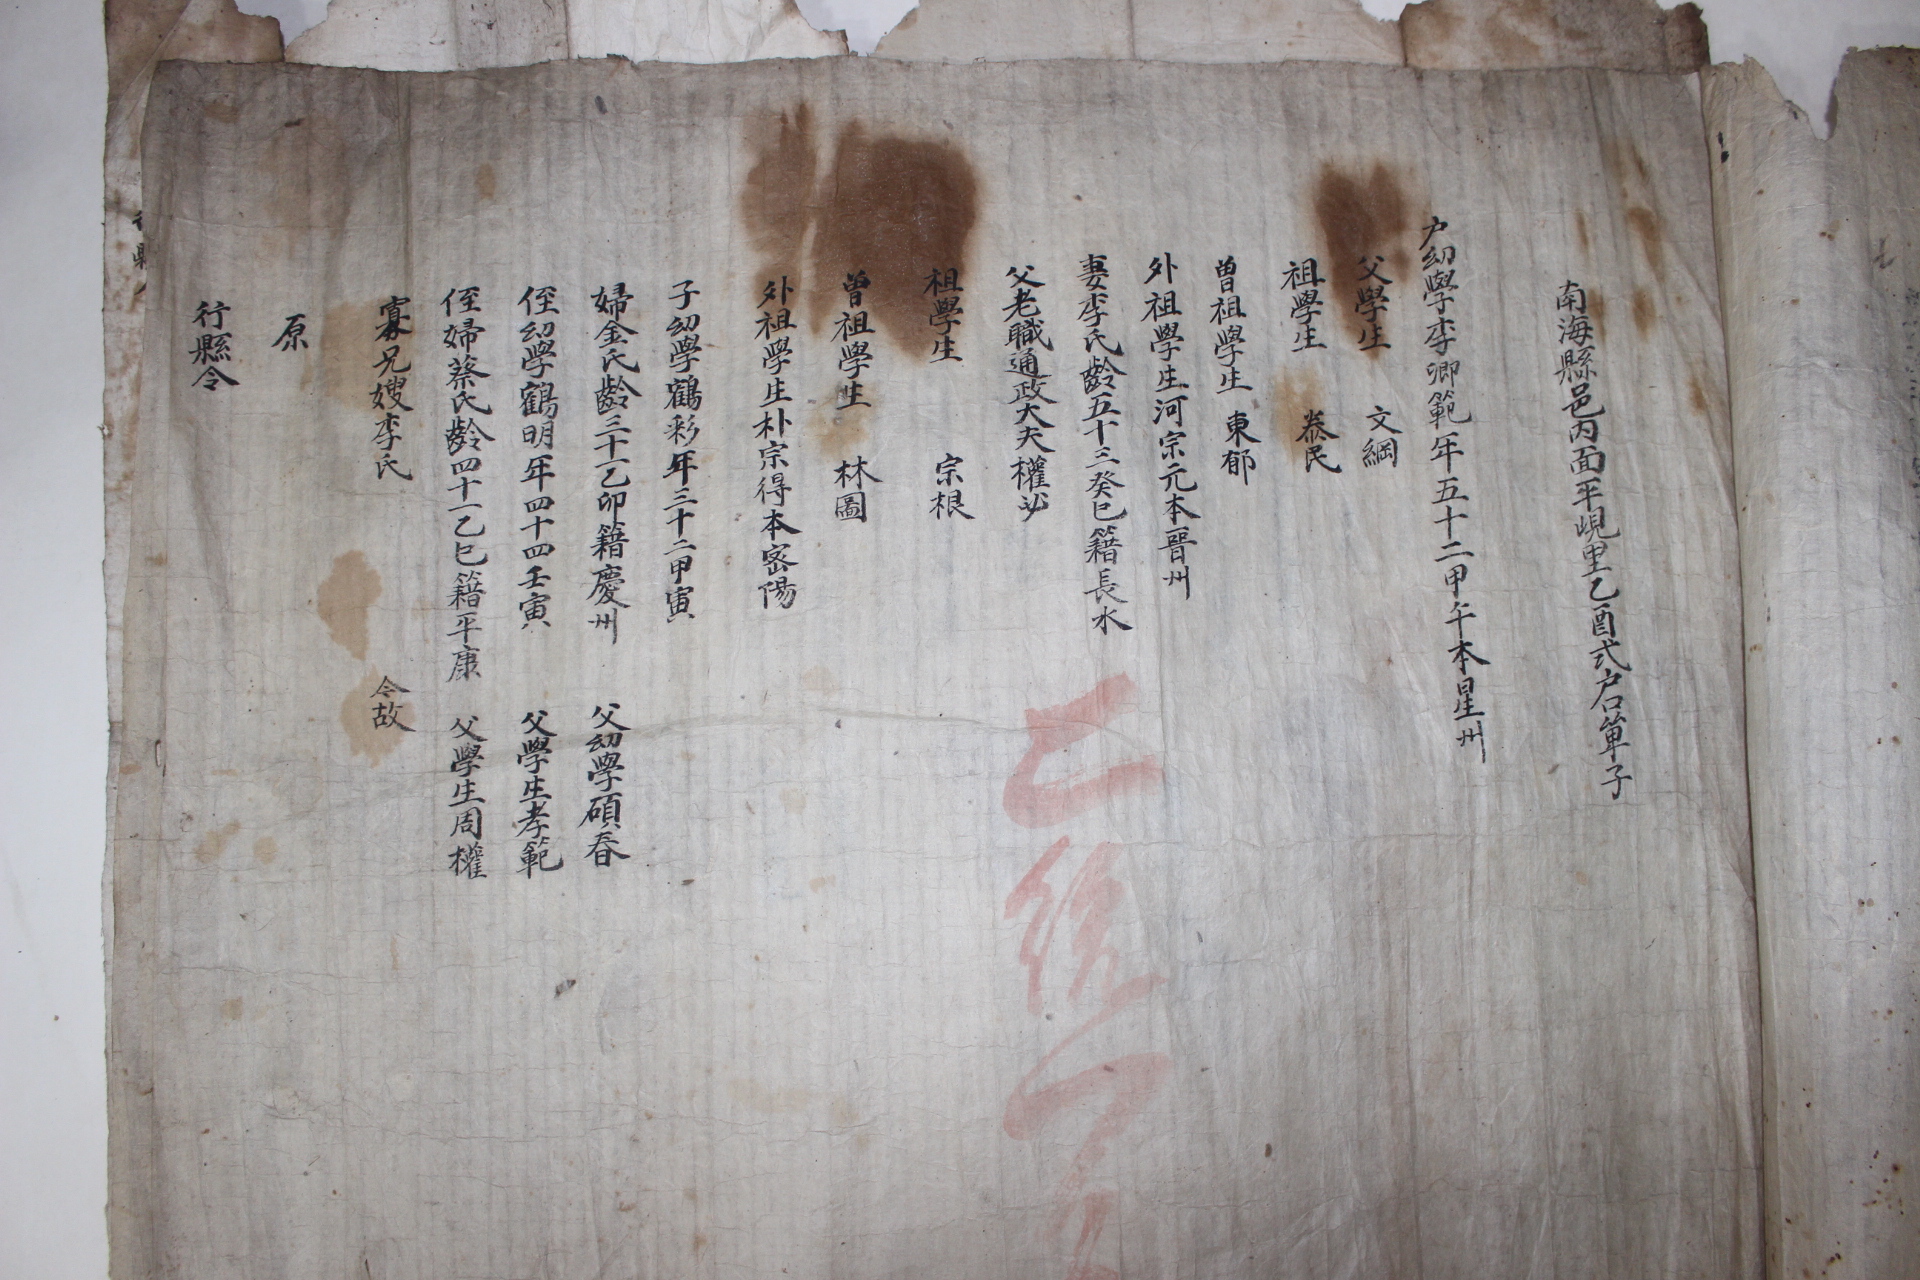 南海縣邑內面平峴里乙酉式户口單子
户幼學李卿範年五十二甲午本星州
父學生 文綱
祖學生 泰民
曾祖學生 東郁
外祖學生河宗元本晉州
妻李氏齡五十三癸巳籍長水
父老職通政大夫權
祖學生 宗根
曾祖學生 林圖
外祖學生朴宗得本密陽
子幼學鶴彩年三十二甲寅
婦金氏齡三十一乙卯籍慶州 父幼學碩春
侄幼學鶴明年四十四壬寅 父學生孝範
侄婦蔡氏齡四十一乙巳籍平康 父學生周權
寡兄嫂李氏 今故
原
行縣令